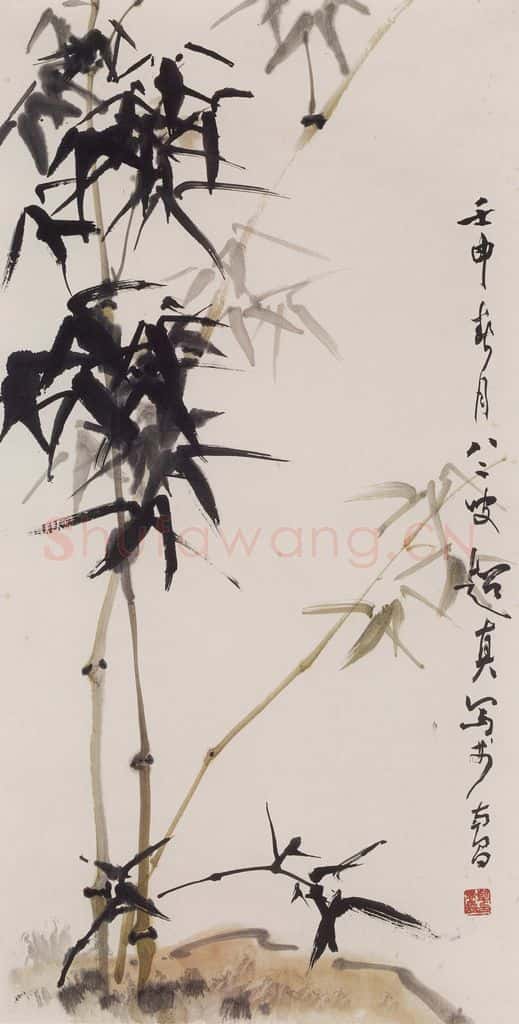 壬申春月八二叟超真写於南昌
Shufawang.CN